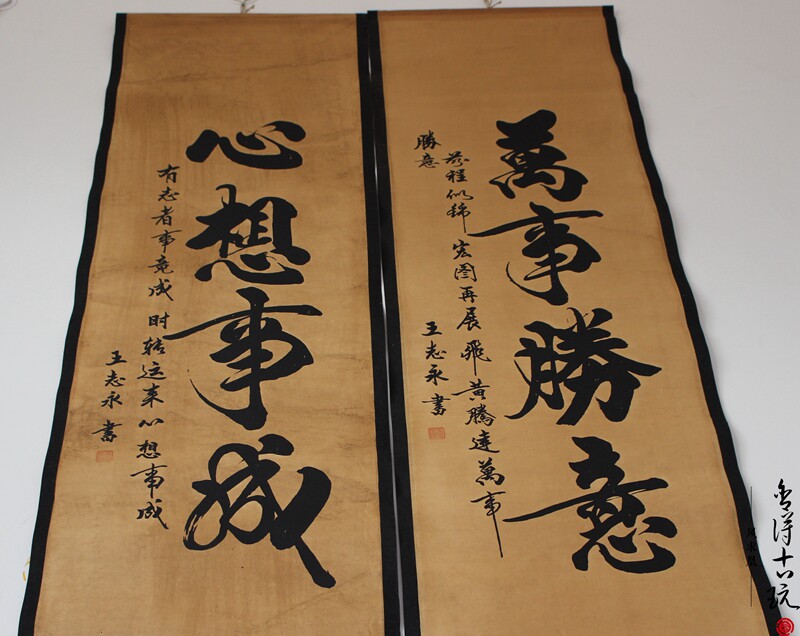 萬事勝意
前程似锦 宏图再展 飛黄腾達萬事
勝意
王志永書
心想事成
有志者事竟成 时转运来心想事成
王志永書